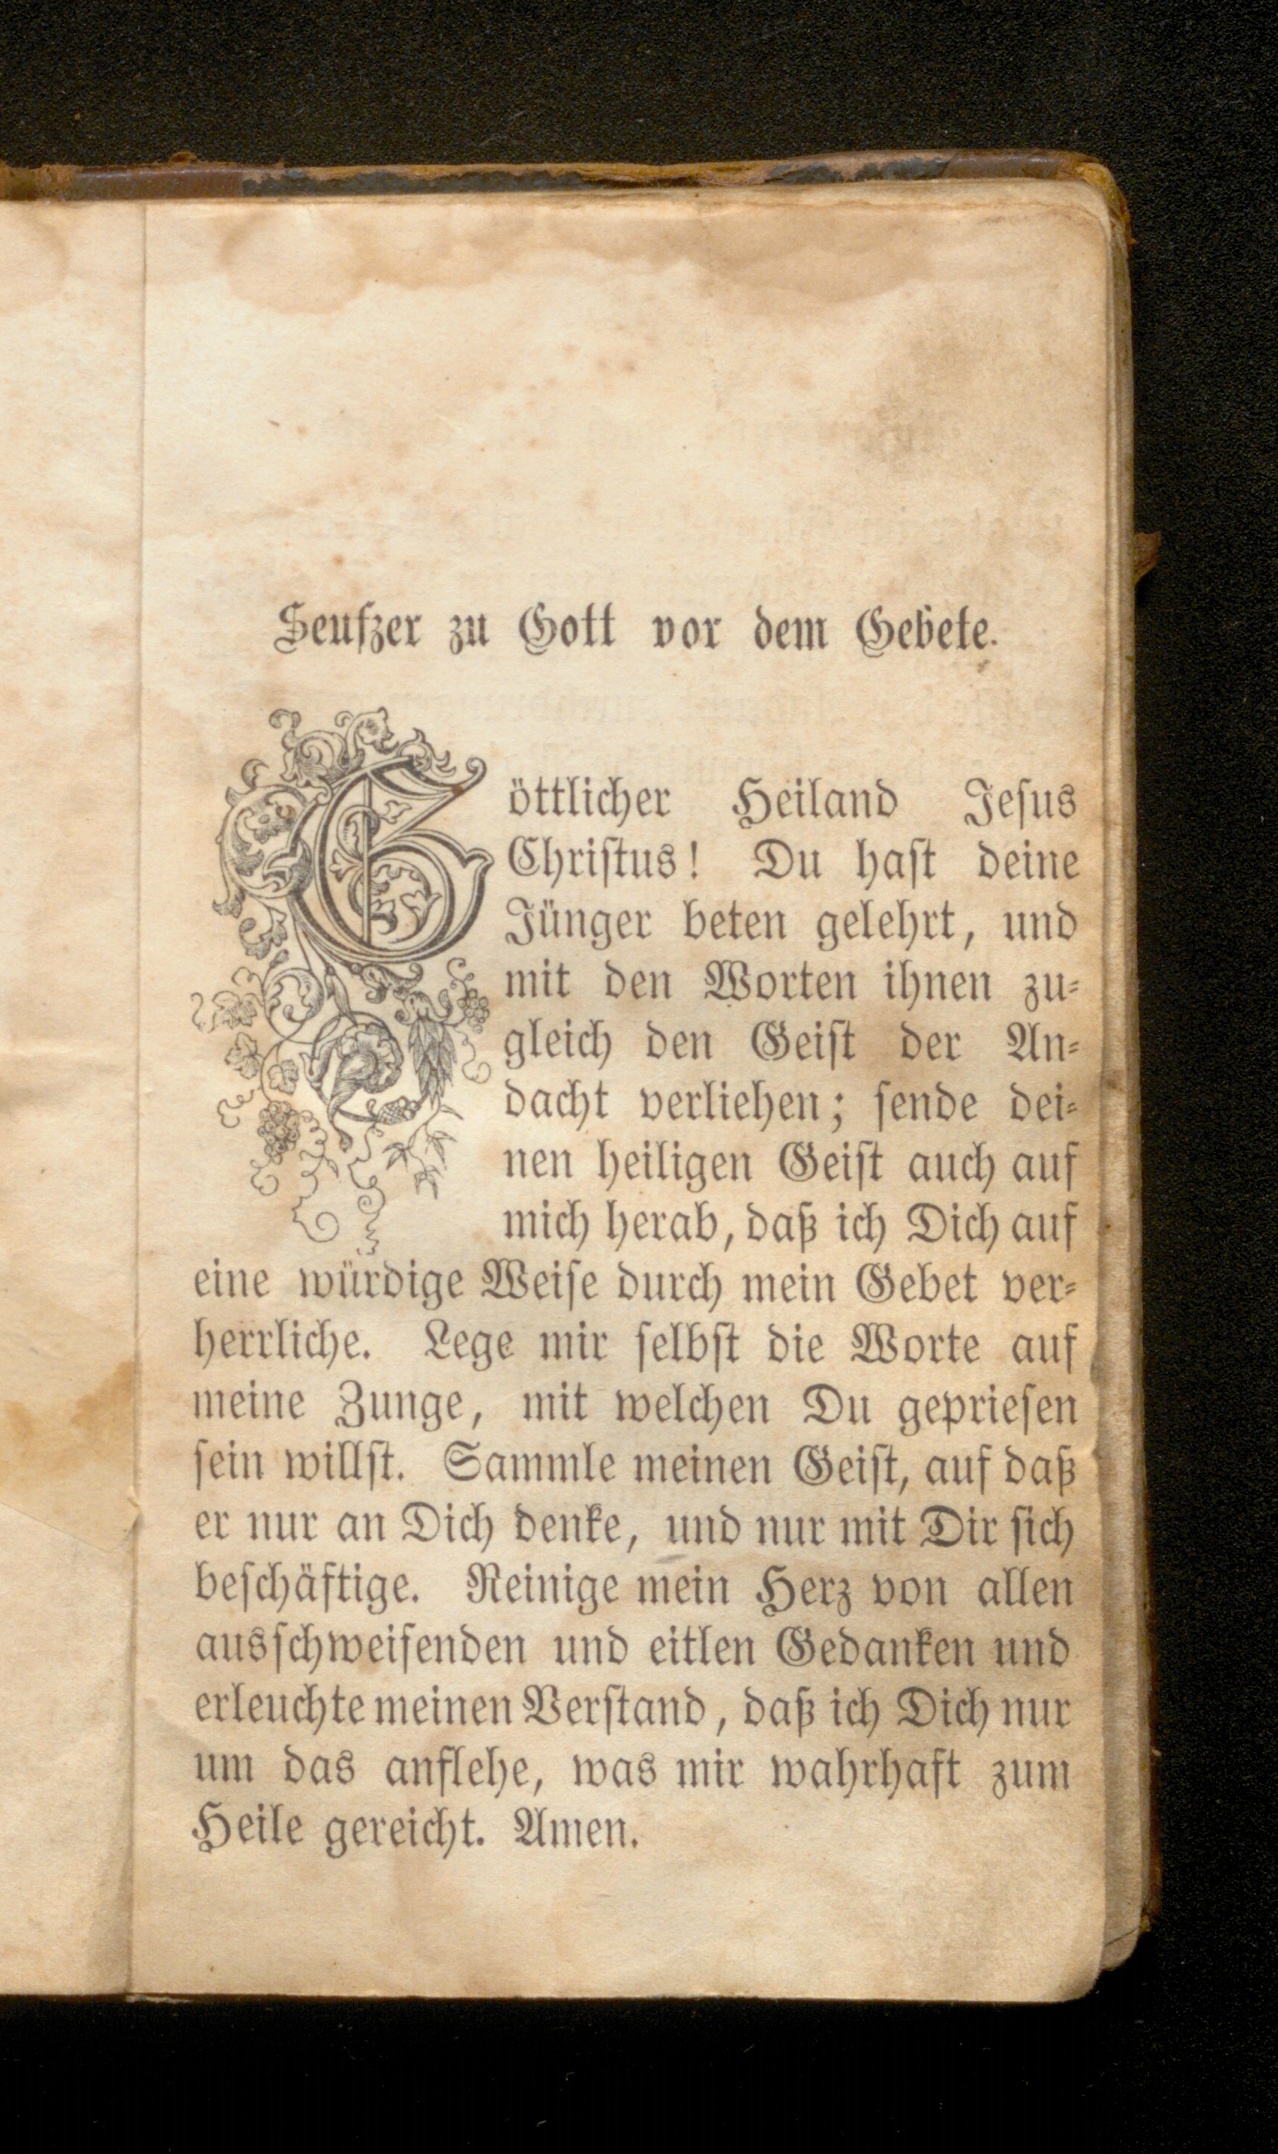 Seufzer zu Gott vor dem Gebete.
Göttlicher Heiland Jesus
Christus! Du hast deine
Jünger beten gelehrt, und
mit den Worten ihnen zu-
gleich den Geist der An-
dacht verliehen; sende dei-
nen heiligen Geist auch auf
mich herab, daß ich Dich auf
eine würdige Weise durch mein Gebet ver-
herrliche. Lege mir selbst die Worte auf
meine Zunge, mit welchen Du gepriesen
sein willst. Sammle meinen Geist, auf daß
er nur an Dich denke, und nur mit Dir sich
beschäftige. Reinige mein Herz von allen
ausschweifenden und eitlen Gedanken und
erleuchte meinen Verstand, daß ich Dich nur
um das anflehe, was mir wahrhaft zum
Heile gereicht. Amen.